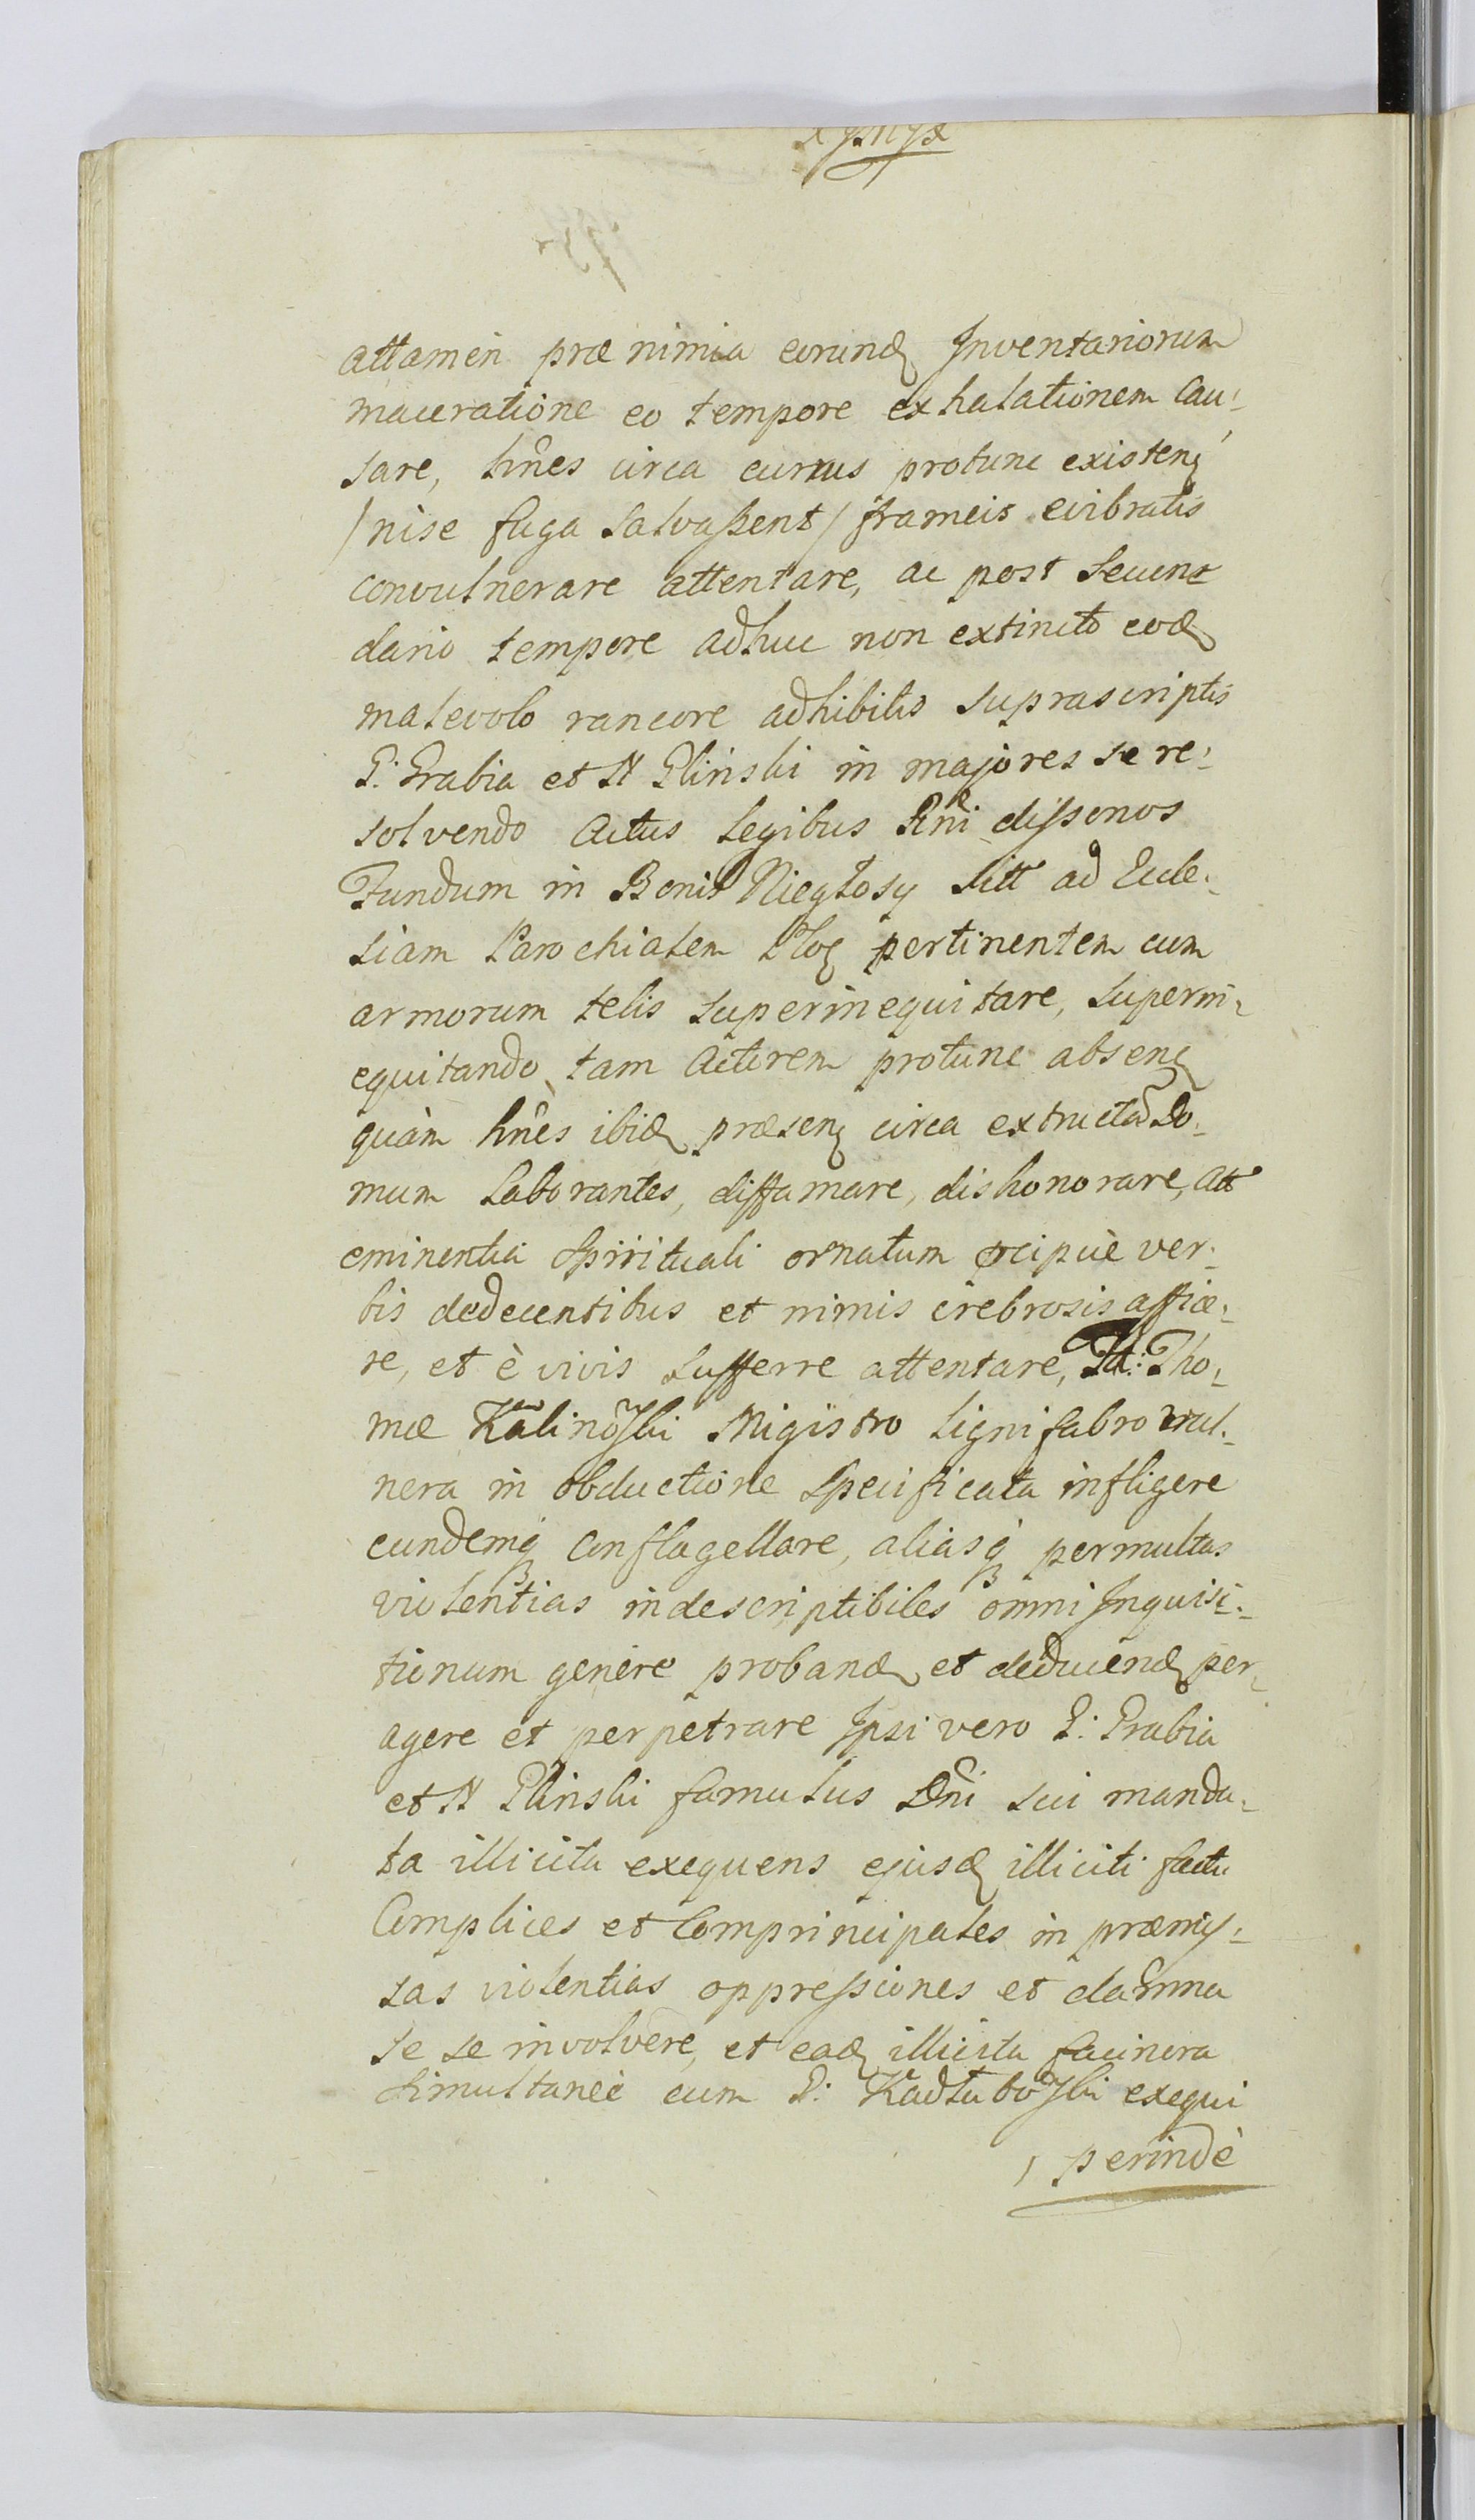 attamen præ nimia eorund Inventariorum
maceratione eo tempore exhalationem Cau-
sare, hn̂es circa currus protunc existen
/nise fuga salvaßent/ frameis evibratis
convulnerare attentare, ac post secun
dario tempore adhuc non extincto eod
malevolo rancore adhibitis suprascriptis
P: Grabia et N Glinski in majores se re-
solvendo Actus Legibus Rni dissonos
Fundum in Bonis Niegłosy sitt ad Eccle-
siam Parochialem Ploc pertinentem cum
armorum telis superinequitare, superin-
equitando tam Actorem protunc absen
quàm hn̂es ibid præsen circa extructã Do-
mum Laborantes, diffamare, dishonorare, att
eminentia Spirituali ornatum præcipuè ver-
bis dedecentibus et nimis crebrosis afficæ-
re, et è vivis sufferre attentare, Tho-
mæ Kalinoski Migistro Lignifabro vul-
nera in obductione specificata infligere
eundemq conflagellare, aliasq permultas
violentias indescriptibiles omni Inquisi-
tionum genere proband et deducend per-
agere et perpetrare Ipsi vero P: Grabia
et N Glinski famulus Dni sui manda-
ta illicita exequens ejusd illiciti facti
Complices et Comprincipales in præmis-
sas violentias oppressiones et damna
se se involvere, et ead illicita facinora
simultaneè cum P: Kadłuboski exequi
perindè